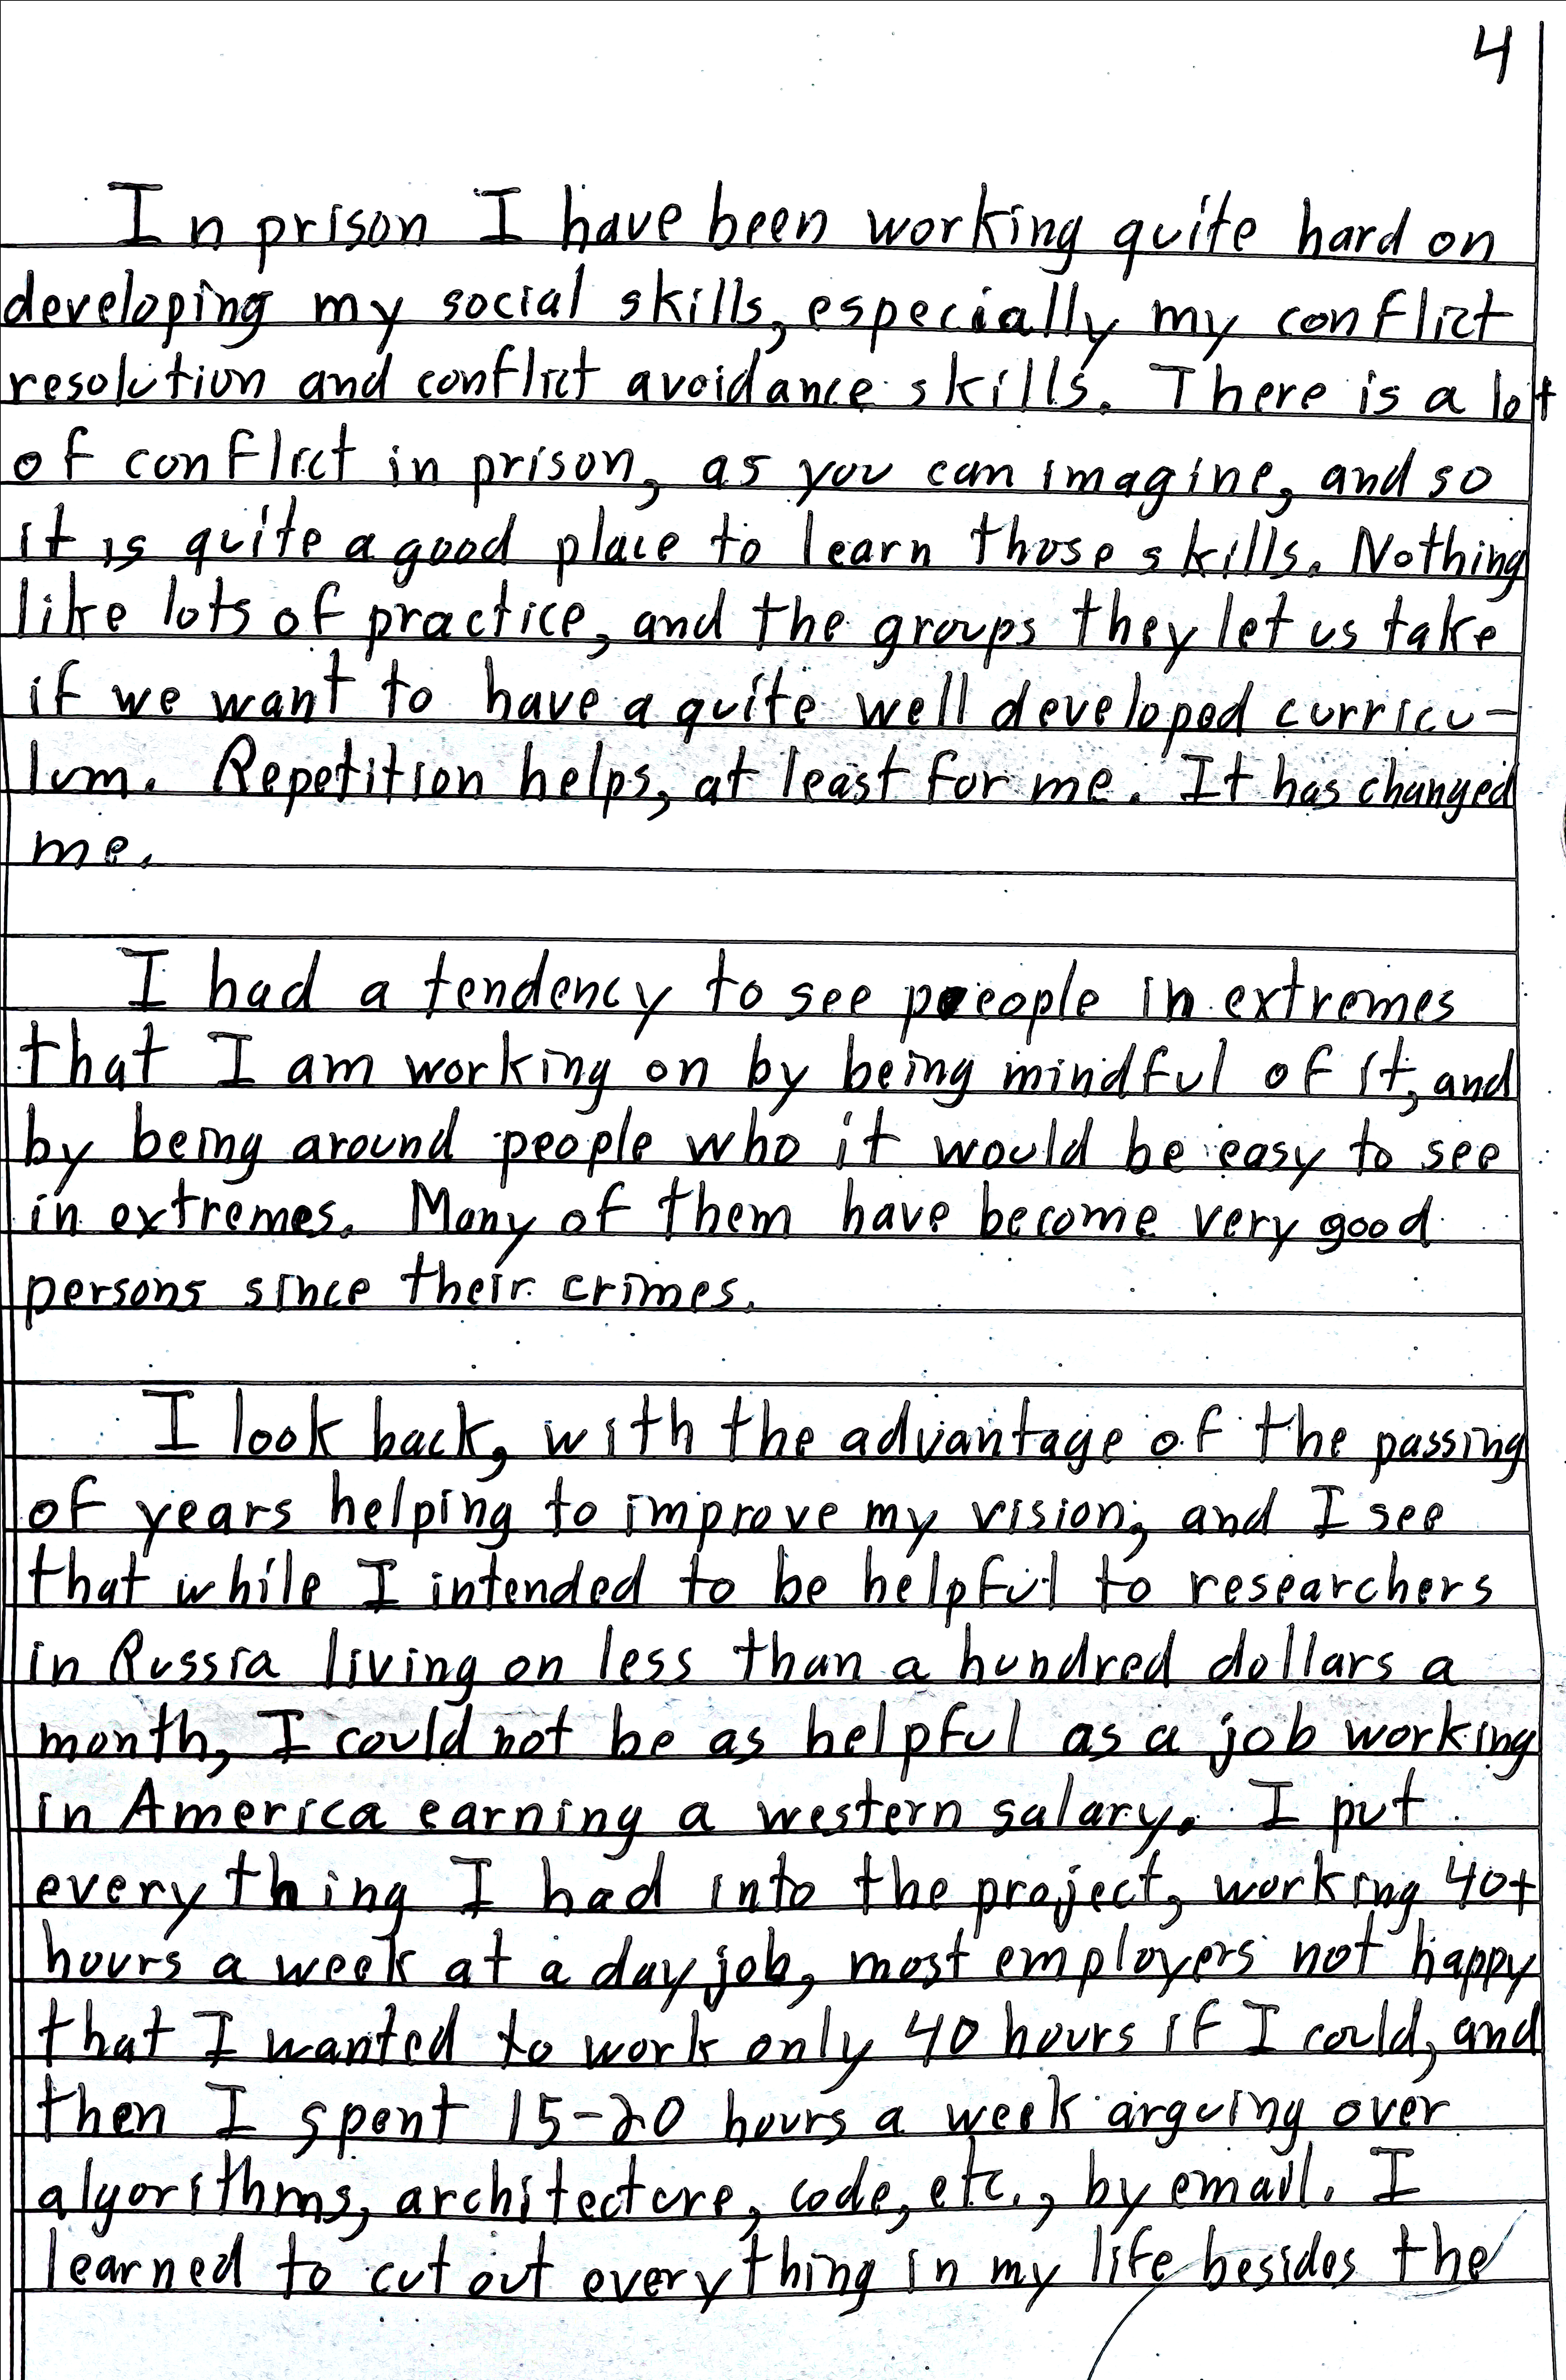 4
In prison I have been working quite hard on
developing my social skills, especially my conflict
resolution and conflict avoidance skills. There is a lot
of conflict in prison, as you can imagine, and so
it is quite a good place to learn those skills. Nothing
like lots of practice, and the groups they let us take
if we want to have a quite well developed curricu-
lum. Repetition helps, at least for me. It has changed
me.
I had a tendency to see people in extremes
that I am working on by being mindful of it, and
by being around people who it would be easy to see
in extremes. Many of them have become very good
persons since their crimes.
I look back, with the advantage of the passing
of years helping to improve my vision, and I see
that while I intended to be helpful to researchers
in Russia living on less than a hundred dollars a
month, I could not be as helpful as a job working
in America earning a western salary. I put
everything I had into the project, working 40+
hours a week at a day job, most employers not happy
that I wanted to work only 40 hours if I could, and
then I spent 15-20 hours a week arguing over
algorithms, architecture, code, etc., by email. I
learned to cut out everything in my life besides the